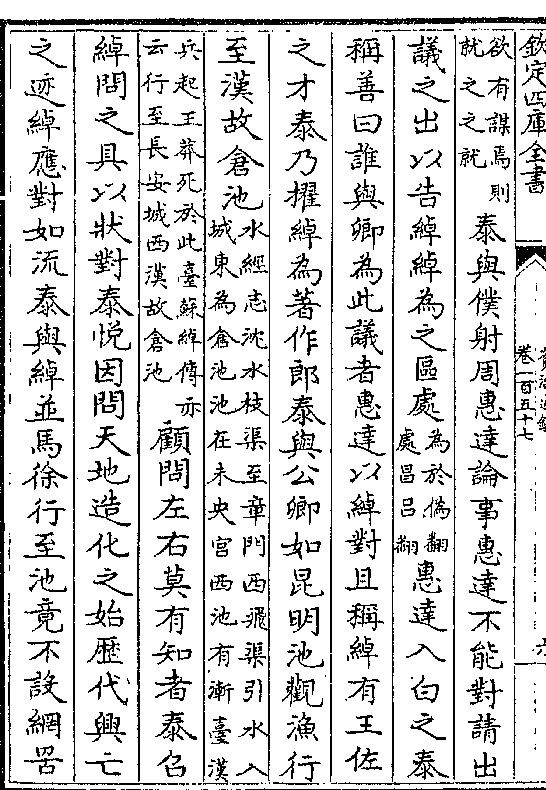 欽定四庫全書
卷一百五十七
欲有謀焉則就之之就泰與僕射周惠達論事惠達不能對請出
議之出以告綽綽為之區處為於偽翻處昌呂翻惠達入白之泰
稱善曰誰與卿為此議者惠達以綽對且稱綽有王佐
之才泰乃擢綽為著作郎泰與公卿如昆明池觀漁行
至漢故倉池水經志沈水枝渠至章門西飛渠引水入城東為倉池池在未央宮西池有漸臺漢
兵起王莽死於此臺蘇綽傳亦云行至長安城西漢故倉池顧問左右莫有知者泰召
綽問之具以狀對泰悅因問天地造化之始歷代興亡
之迹綽應對如流泰與綽並馬徐行至池竟不設網罟